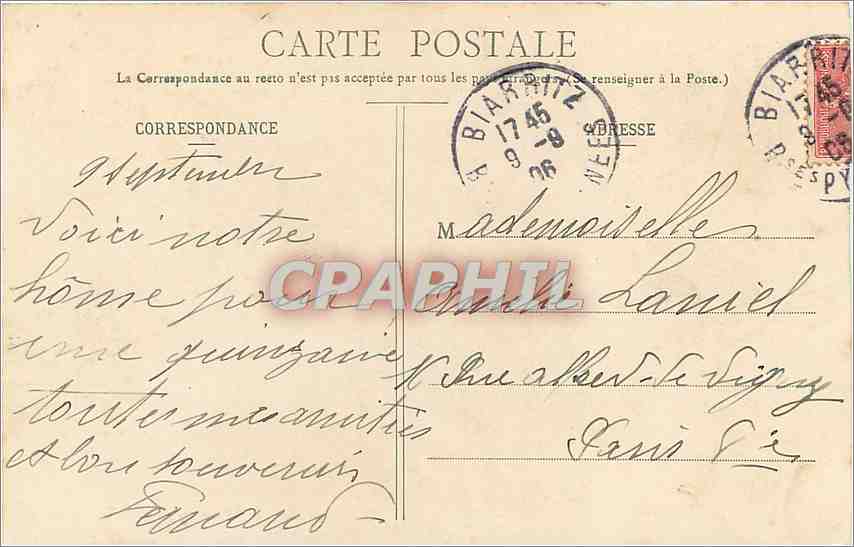 CARTE POSTALE
La Correspondance au recto n'est pas acceptée par tous les pays étrangers. (Se renseigner à la Poste.)
CORRESPONDANCE
9 Septembre
Voici notre
hôme pour
une quinzaine
toutes mes amitiés
et bon souvenir
Fernand
ADRESSE
Mademoiselle
Laniel
Rue Alfred de Vigny
Paris 8è
BIARRITZ
17 45
9 -9
06
BIARRITZ
17 45
9
06
CPARHIL